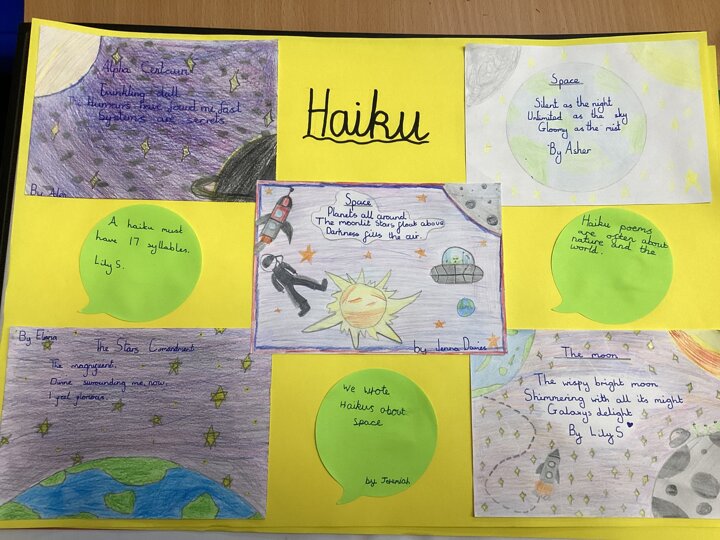 Haiku
Alpha Centauri
Twinkling dull
The Humans have found me fast
Systems are secrets
By Alex
Space
Silent as the night
Unlimited as the sky
Gloomy as the mist
By Asher
A haiku must
have 17 syllables.
Lily S.
Space
Planets all around
The moonlit stars float above
Darkness fills the air.
by Jenna Davies
Haiku poems
are often about
nature and the
world.
By Elena
The Stars Comendment
The magnyficent.
Divine surrounding me, now.
I feel glorious.
We wrote
Haikus about
Space
by Jeremiah
The moon
The wispy bright moon
Shimmering with all its might
Galaxys delight
By Lily S